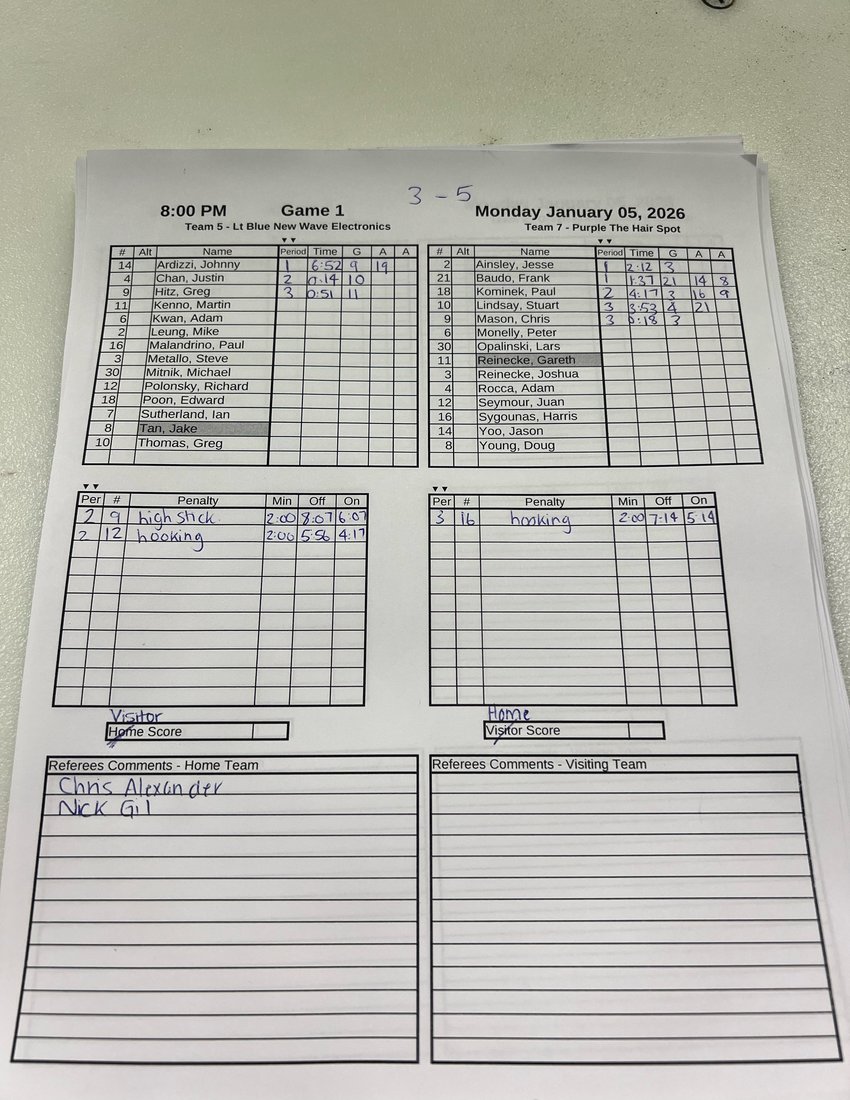 3 - 5
8:00 PM Game 1 Monday January 05, 2026
Team 5 - Lt Blue New Wave Electronics
Team 7 - Purple The Hair Spot
# Alt Name Period Time G A A
14 Ardizzi, Johnny 1 6:52 9 19
4 Chan, Justin 2 0:14 10
9 Hitz, Greg 3 0:51 11
11 Kenno, Martin
6 Kwan, Adam
2 Leung, Mike
16 Malandrino, Paul
3 Metallo, Steve
30 Mitnik, Michael
12 Polonsky, Richard
18 Poon, Edward
7 Sutherland, Ian
8 Tan, Jake
10 Thomas, Greg
# Alt Name Period Time G A A
2 Ainsley, Jesse 1 2:12 3
21 Baudo, Frank 1 1:37 21 14 8
18 Kominek, Paul 2 4:17 3 16 9
10 Lindsay, Stuart 3 3:53 4 21
9 Mason, Chris 3 0:18 3
6 Monelly, Peter
30 Opalinski, Lars
11 Reinecke, Gareth
3 Reinecke, Joshua
4 Rocca, Adam
12 Seymour, Juan
16 Sygounas, Harris
14 Yoo, Jason
8 Young, Doug
Per # Penalty Min Off On
2 9 high stick 2:00 8:07 6:07
2 12 hooking 2:00 5:56 4:17
Per # Penalty Min Off On
3 16 hooking 2:00 7:14 5:14
Visitor
Home Score
Home
Visitor Score
Referees Comments - Home Team
Chris Alexander
Nick Gil
Referees Comments - Visiting Team